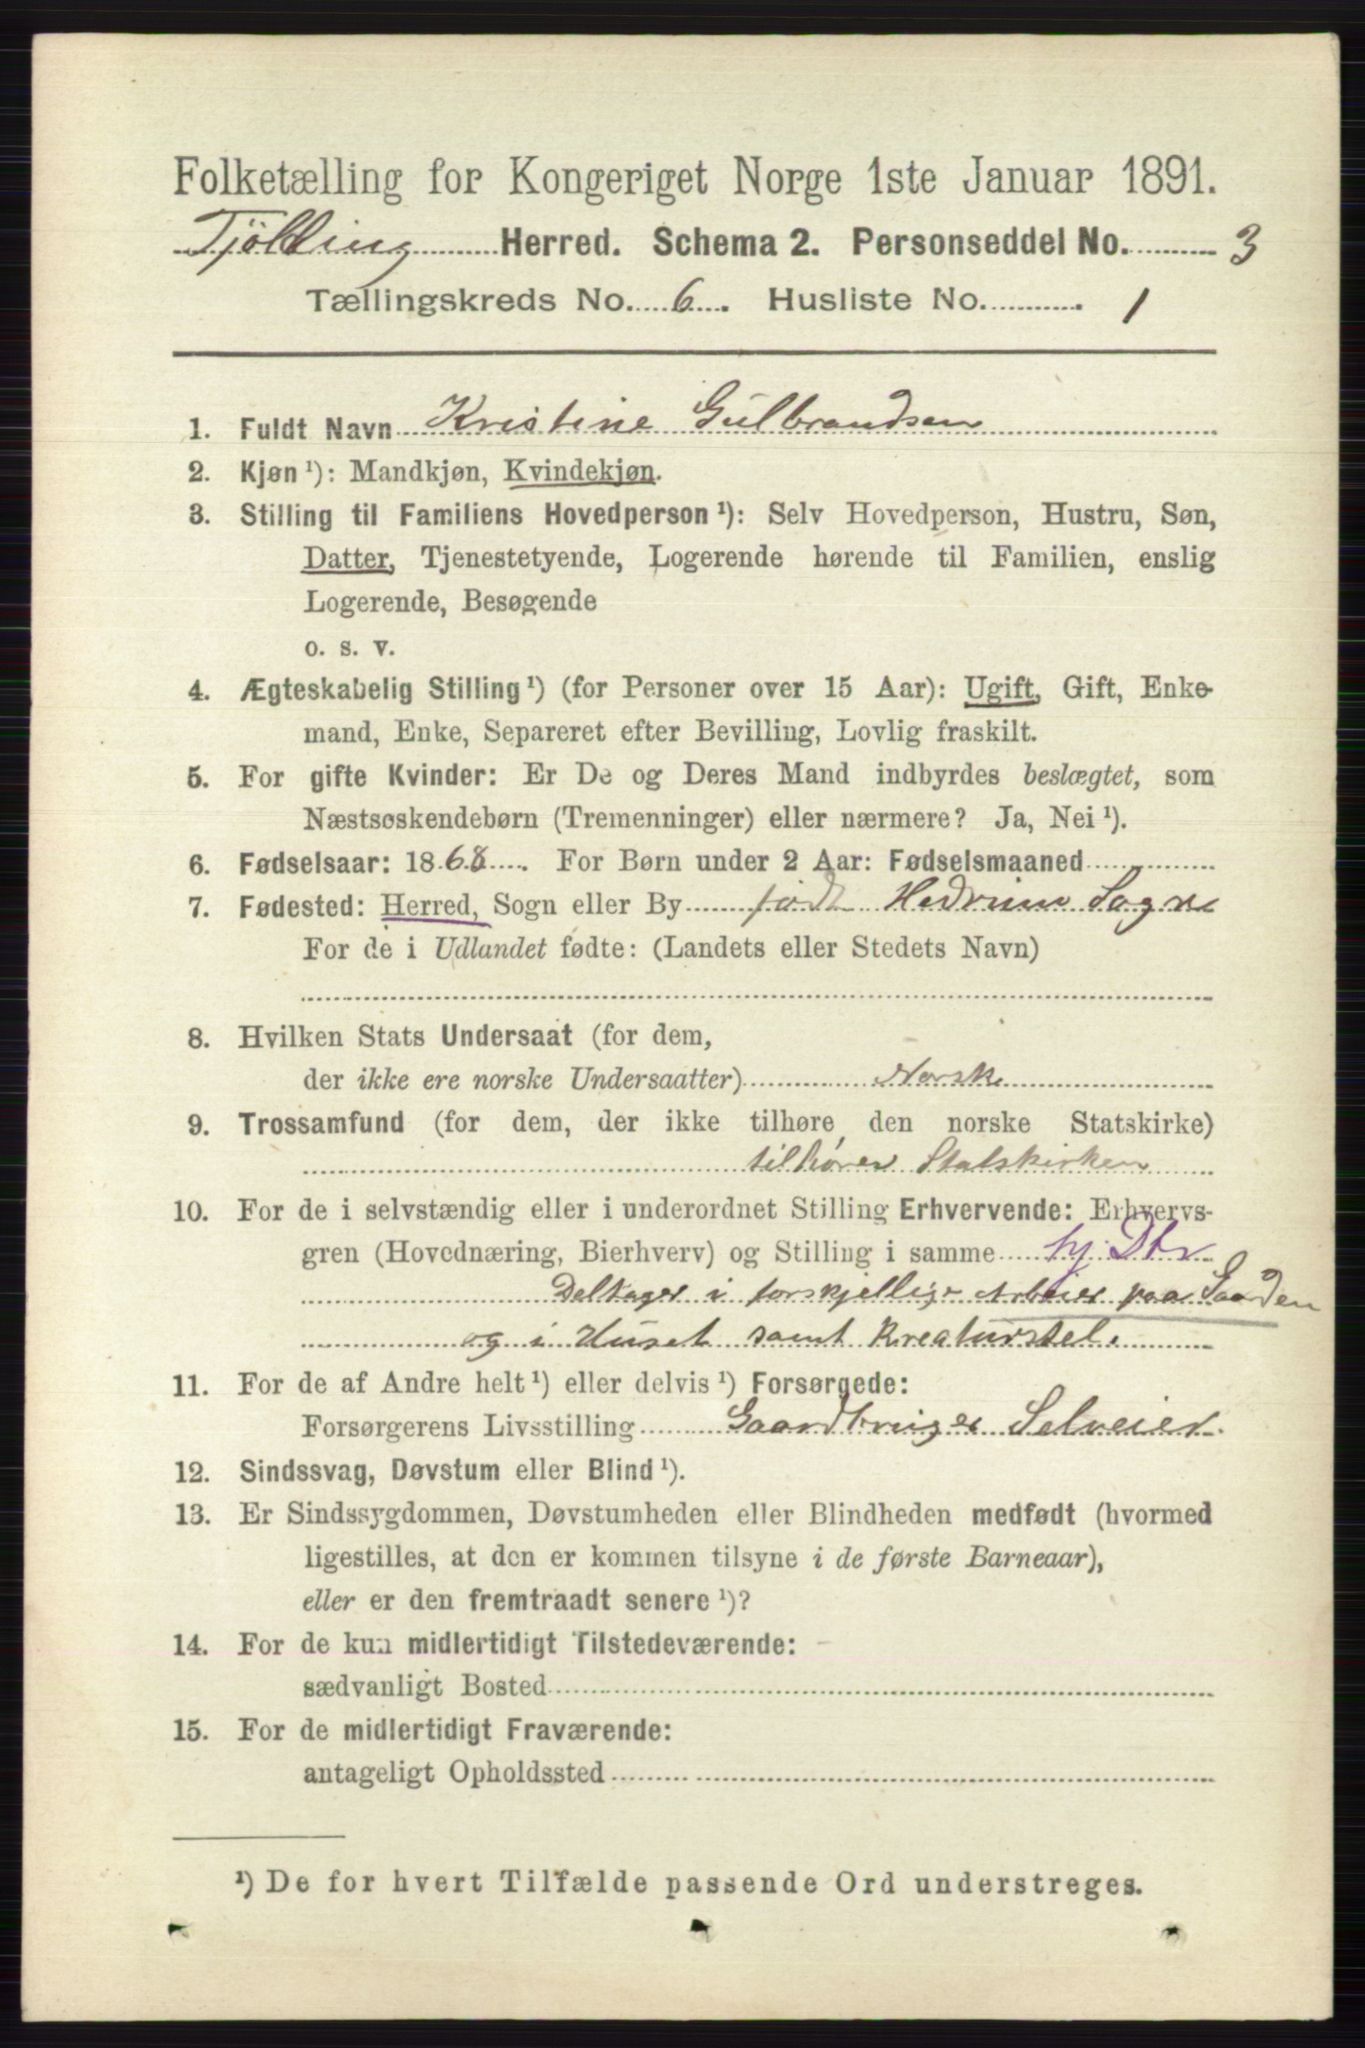 Folketælling for Kongeriget Norge 1ste Januar 1891.
Tjölling Herred. Schema 2. Personseddel No. 3
Tællingskreds No. 6. Husliste No. 1
1. Fuldt Navn Kristine Gulbrandsen
2. Kjøn¹): Mandkjøn, Kvindekjøn.
3. Stilling til Familiens Hovedperson¹): Selv Hovedperson, Hustru, Søn,
Datter, Tjenestetyende, Logerende hørende til Familien, enslig
Logerende, Besøgende
o. s. v.
4. Ægteskabelig Stilling¹) (for Personer over 15 Aar): Ugift, Gift, Enke-
mand, Enke, Separeret efter Bevilling, Lovlig fraskilt.
5. For gifte Kvinder: Er De og Deres Mand indbyrdes beslægtet, som
Næstsøskendebørn (Tremenninger) eller nærmere? Ja, Nei¹).
6. Fødselsaar: 1868. For Børn under 2 Aar: Fødselsmaaned
7. Fødested: Herred, Sogn eller By født Hedrum Sogn
For de i Udlandet fødte: (Landets eller Stedets Navn)
8. Hvilken Stats Undersaat (for dem,
der ikke ere norske Undersaatter) Norsk
9. Trossamfund (for dem, der ikke tilhøre den norske Statskirke)
tilhører Statskirken
10. For de i selvstændig eller i underordnet Stilling Erhvervende: Erhvervs-
gren (Hovednæring, Bierhverv) og Stilling i samme hj. Dtr
Deltager i forskjellige Arbeier paa Gaarden
og i Huset samt Kreaturstel.
11. For de af Andre helt¹) eller delvis¹) Forsørgede:
Forsørgerens Livsstilling Gaardbruger Selveier.
12. Sindssvag, Døvstum eller Blind¹).
13. Er Sindssygdommen, Døvstumheden eller Blindheden medfødt (hvormed
ligestilles, at den er kommen tilsyne i de første Barneaar),
eller er den fremtraadt senere¹)?
14. For de kun midlertidigt Tilstedeværende:
sædvanligt Bosted
15. For de midlertidigt Fraværende:
antageligt Opholdssted
¹) De for hvert Tilfælde passende Ord understreges.